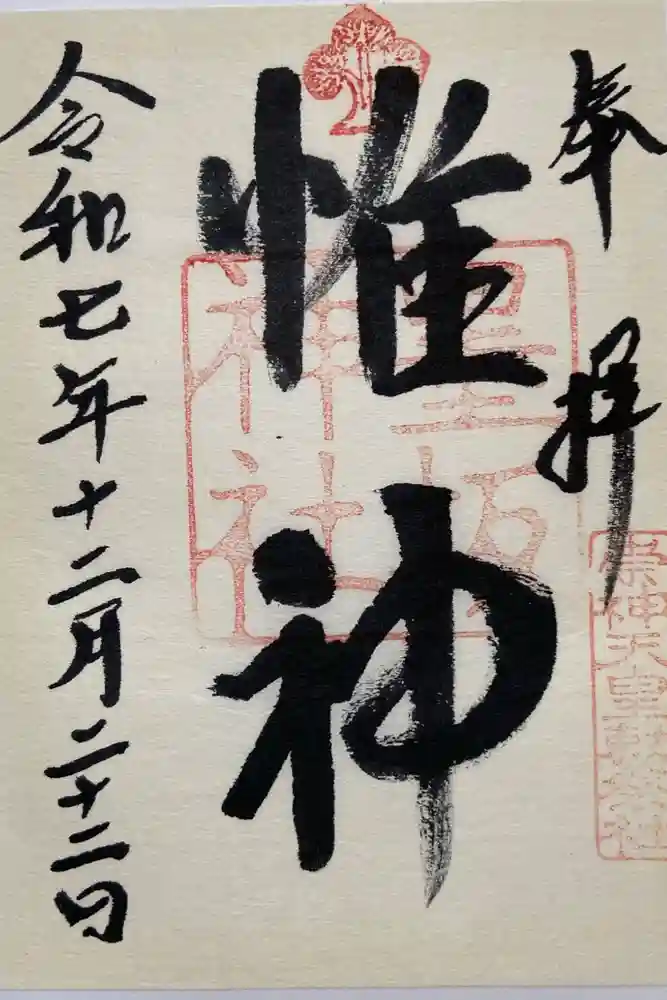 奉拝
惟神
神社
令和七年十二月二十二日